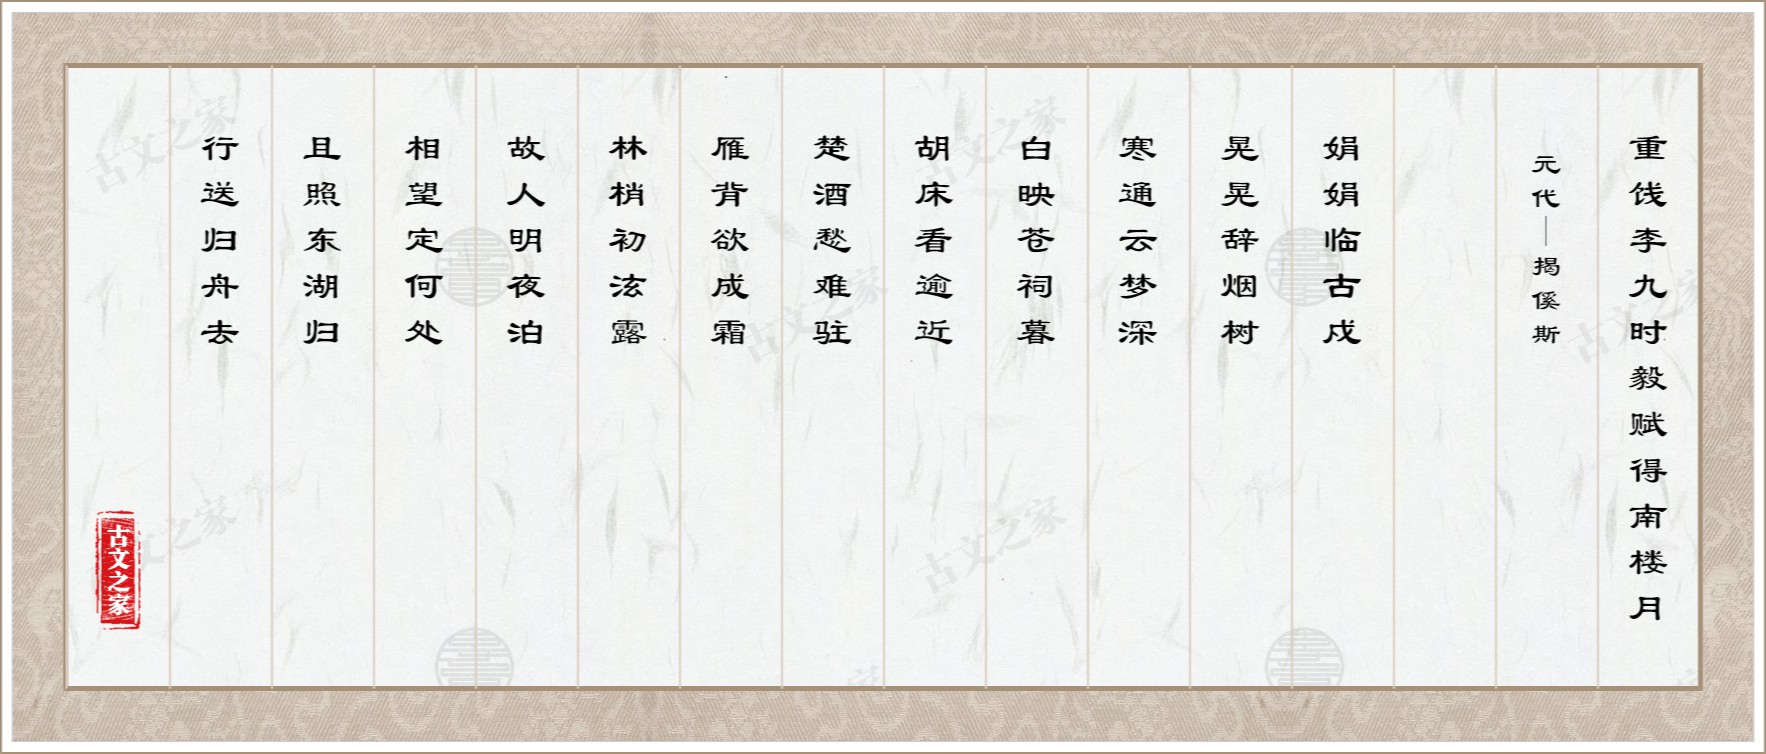 重饯李九时毅赋得南楼月
元代—揭傒斯
娟娟临古戍
晃晃辞烟树
寒通云梦深
白映苍祠暮
胡床看逾近
楚酒愁难驻
雁背欲成霜
林梢初泫露
故人明夜泊
相望定何处
且照东湖归
行送归舟去
古文之家